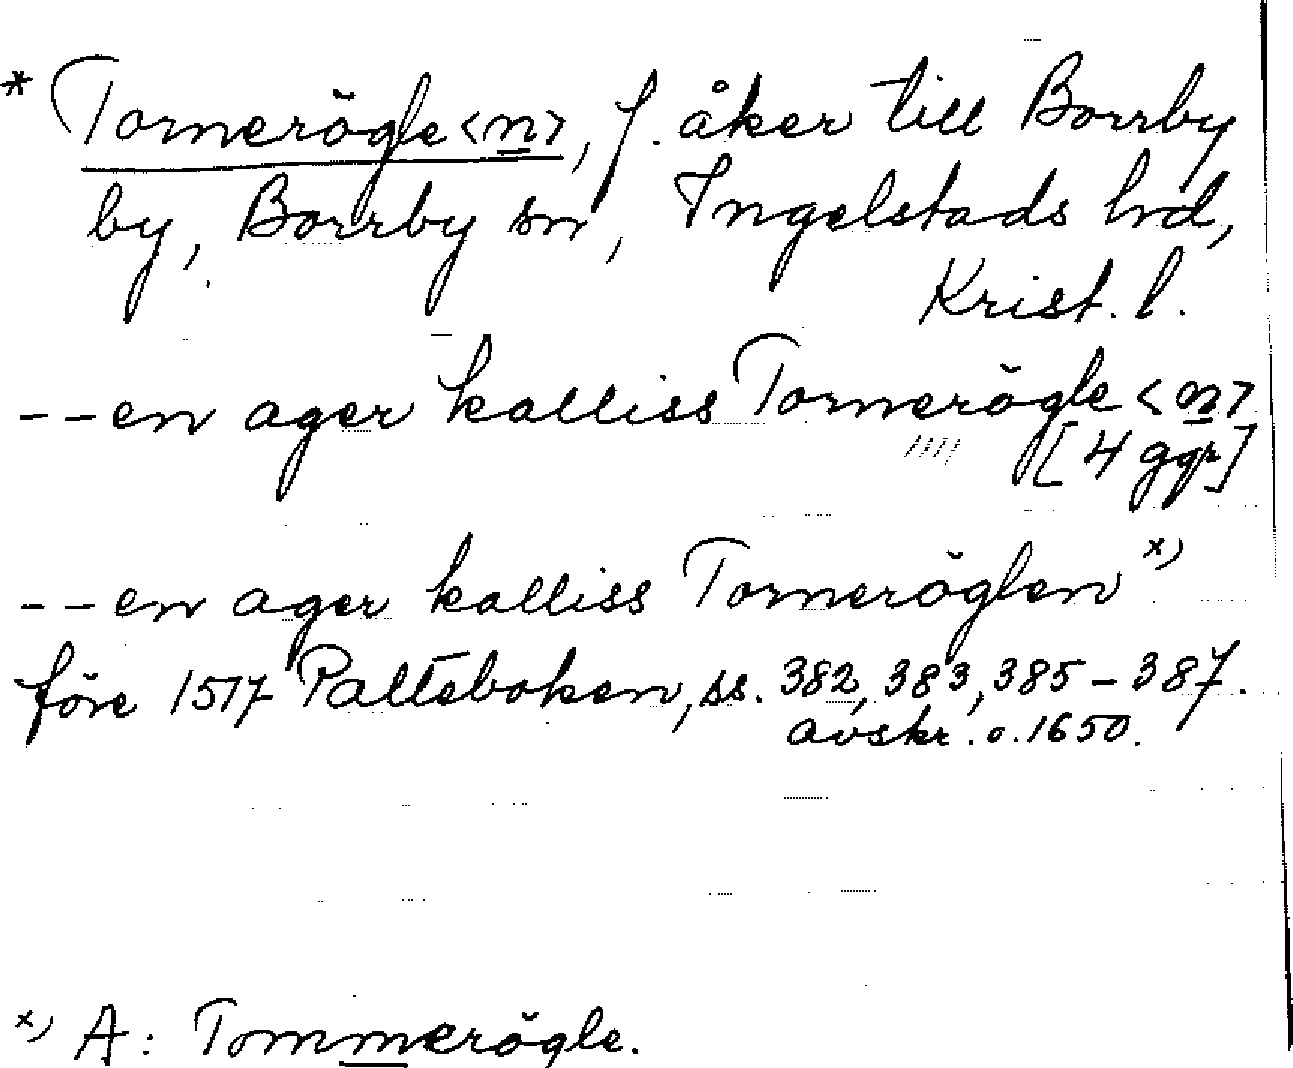 * Tornerögle<n>, f. åker till Borrby
by, Borrby sn, Ingelstads hd,
Krist. l.
--en ager kalliss Tornerögle<n>
[4 ggr]
--en ager kalliss Torneröglen x)
före 1517 Palteboken, ss. 382, 383, 385-387.
avskr. o. 1650.
x) A: Tommerögle.